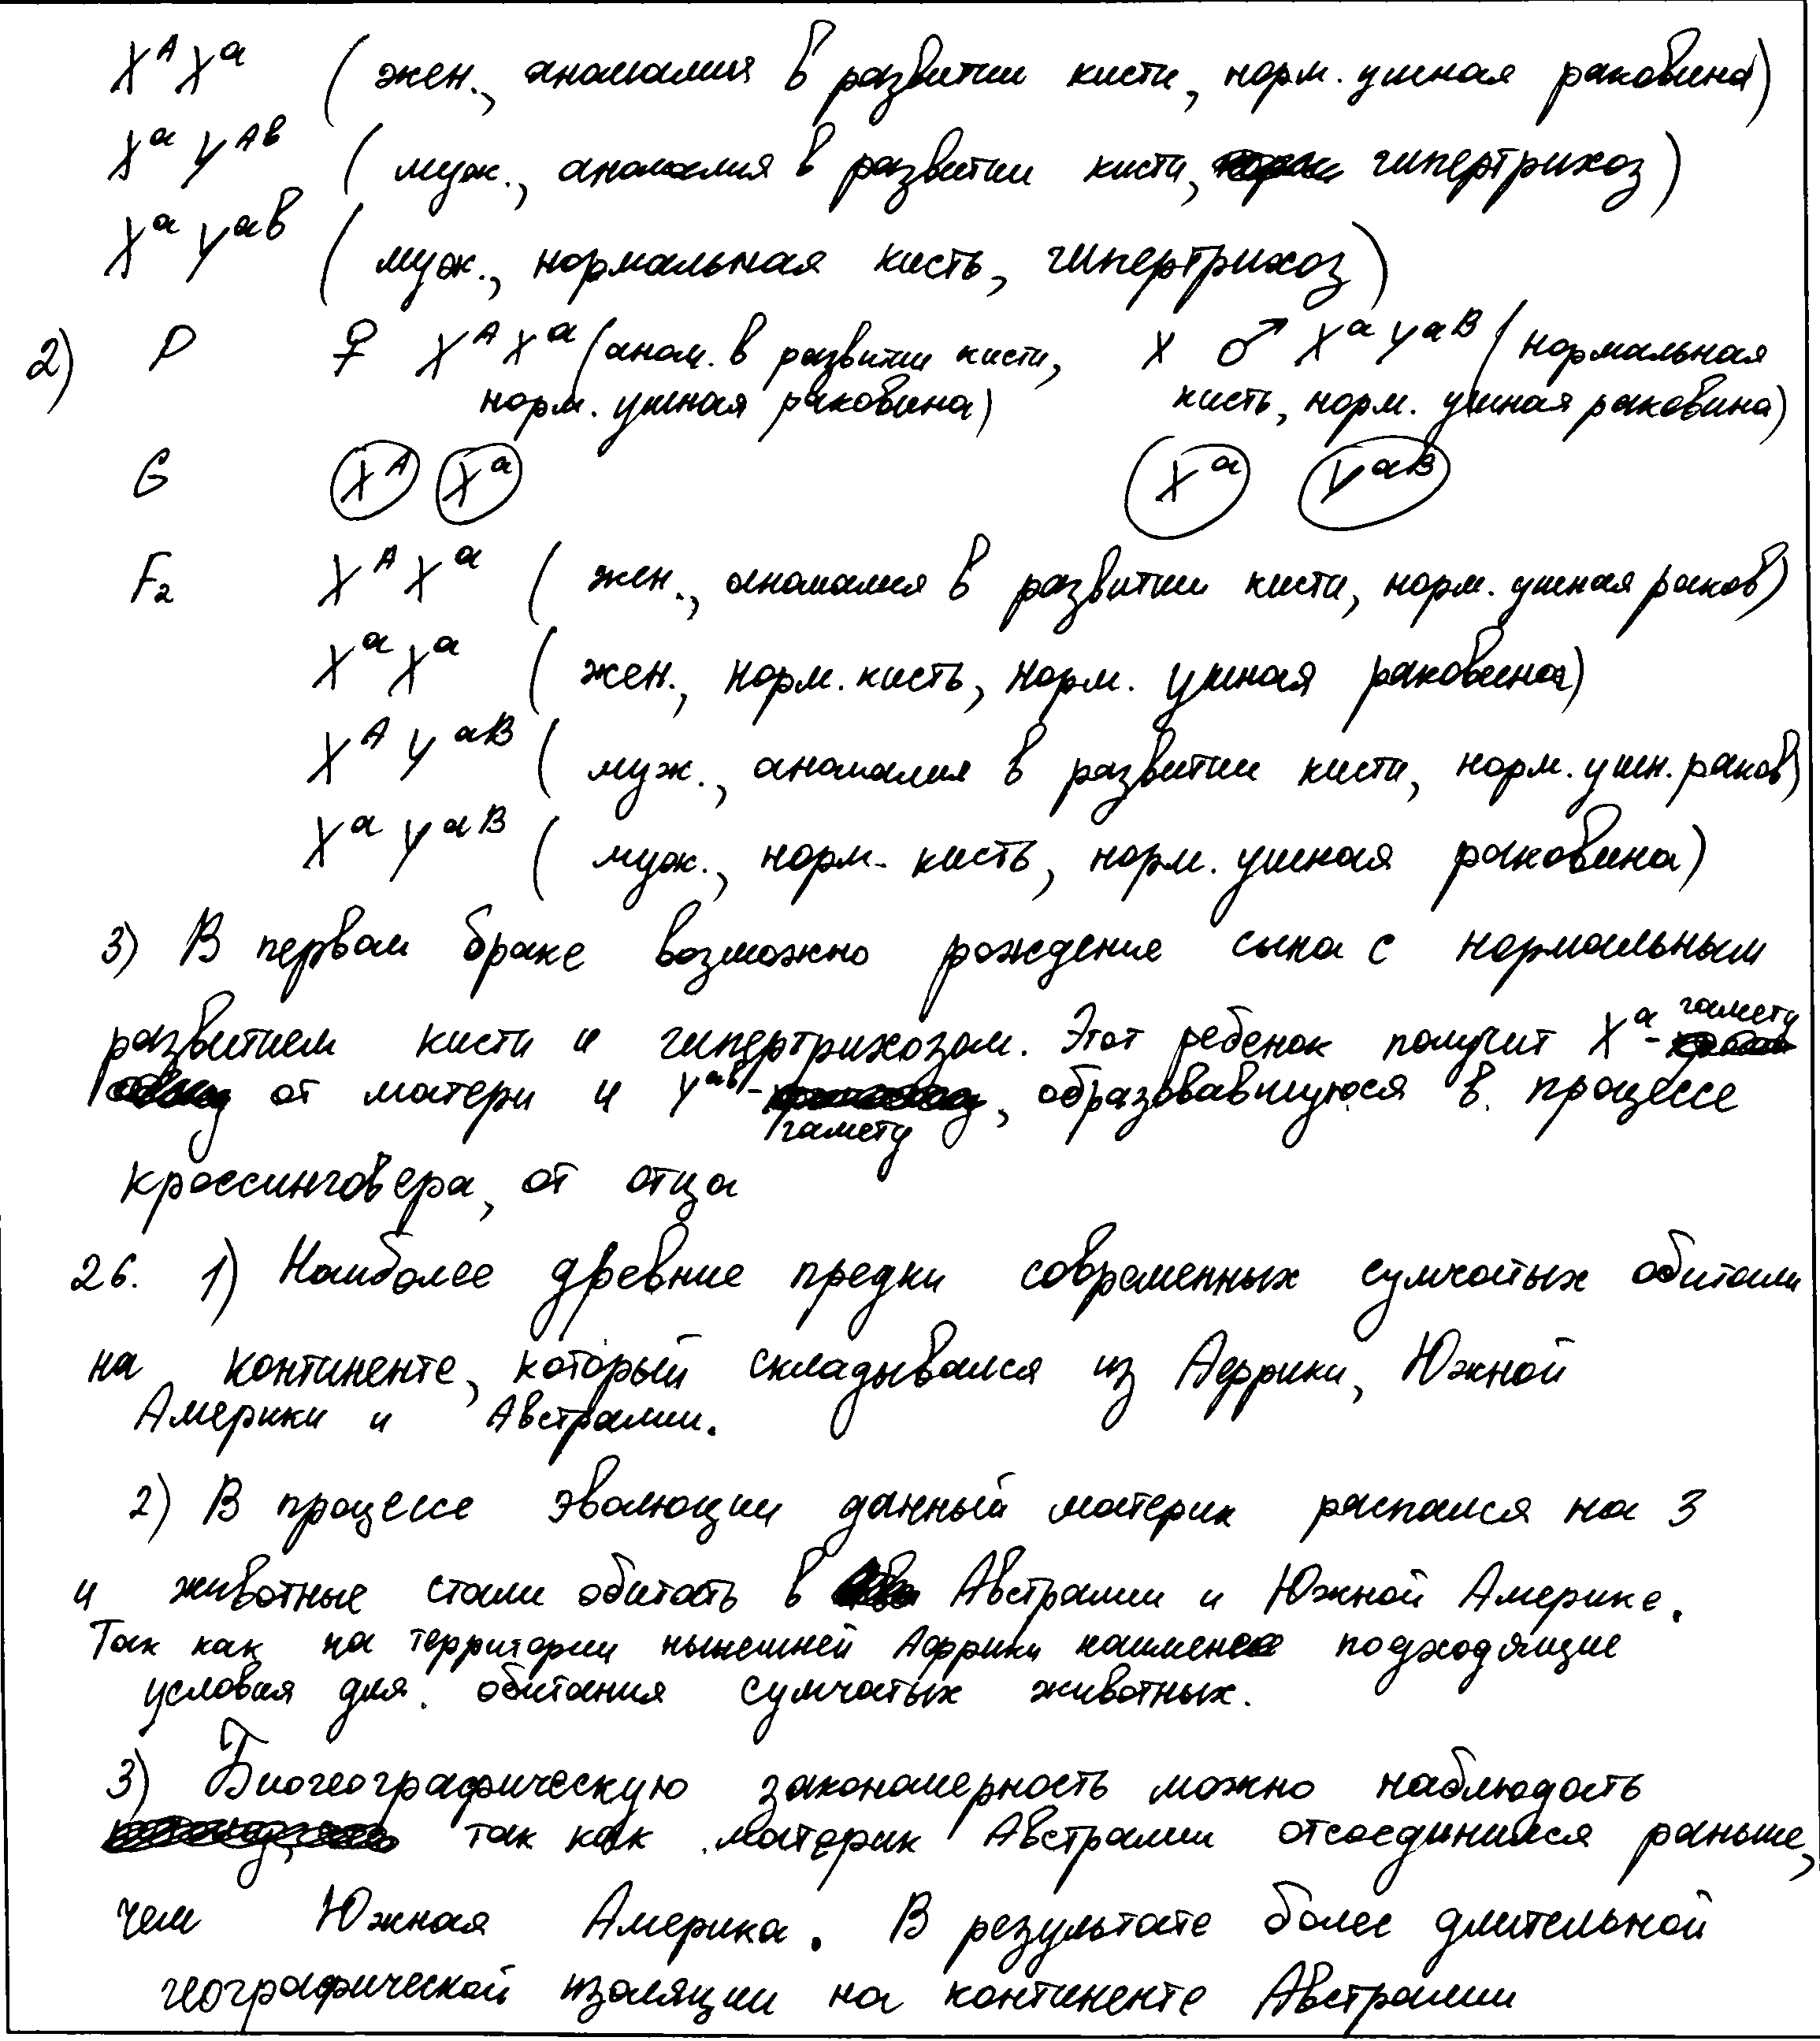 X^A X^a (жен., аномалия в развитии кисти, норм. ушная раковина)
X^a Y^Aв (муж., аномалия в развитии кисти, гипертрихоз)
X^a Y^ав (муж., нормальная кисть, гипертрихоз)
2) P ♀ X^A X^a (аном. в развитии кисти, x ♂ X^a Y^aB (нормальная
норм. ушная раковина) кисть, норм. ушная раковина)
G X^A X^a X^a Y^aB
F2 X^A X^a (жен., аномалия в развитии кисти, норм. ушная раков)
X^a X^a (жен., норм. кисть, норм. ушная раковина)
X^A Y^aB (муж., аномалия в развитии кисти, норм. ушн. раков)
X^a Y^aB (муж., норм. кисть, норм. ушная раковина)
3) В первом браке возможно рождение сына с нормальным
развитием кисти и гипертрихозом. Этот ребенок получит X^a - гамету
от матери и Y^ав - гамету, образовавшуюся в процессе
кроссинговера, от отца
26. 1) Наиболее древние предки современных сумчатых обитали
на континенте, который складывался из Африки, Южной
Америки и Австралии.
2) В процессе эволюции данный материк распался на 3
и животные стали обитать в Австралии и Южной Америке.
Так как на территории нынешней Африки наименее подходящие
условия для обитания сумчатых животных.
3) Биогеографическую закономерность можно наблюдать
так как материк Австралии отсоединился раньше,
чем Южная Америка. В результате более длительной
географической изоляции на континенте Австралии